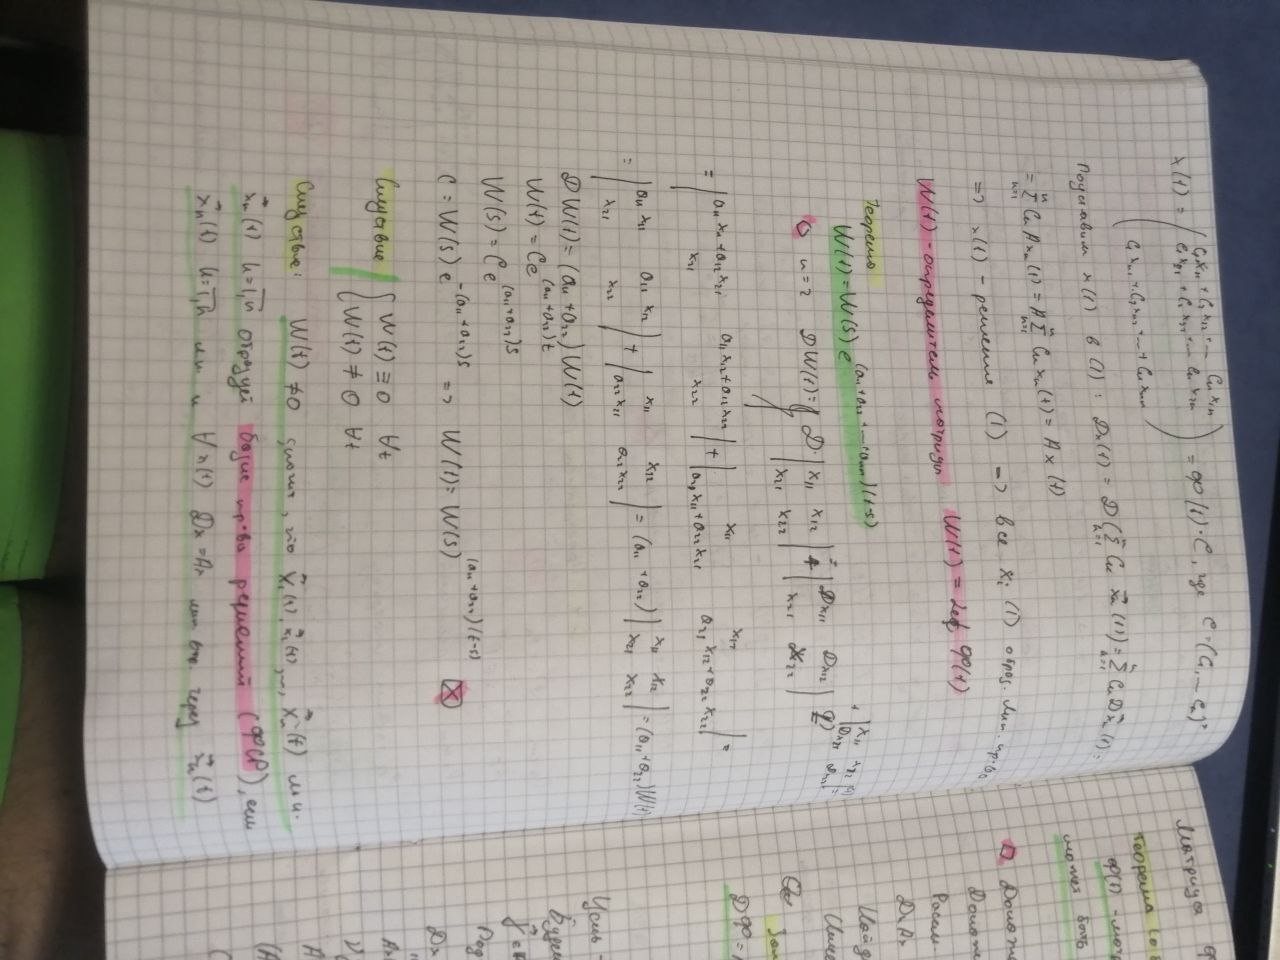 x(t) = ( C₁x₁₁ + C₂x₁₂ + ... Cₙx₁ₙ
C₁x₂₁ + C₂x₂₂ + ... Cₙx₂ₙ
C₁xₙ₁ + C₂xₙ₂ + ... + Cₙxₙₙ ) = Ф(t)·C, где C = (C₁, ... Cₙ)ᵀ
Подставим x(t) в (1): Dx(t) = D(∑ₖ₌₁ⁿ Cₖ x⃗ₖ(t)) = ∑ₖ₌₁ⁿ Cₖ D x⃗ₖ(t) =
= ∑ₖ₌₁ⁿ Cₖ A xₖ(t) = A ∑ₖ₌₁ⁿ Cₖ xₖ(t) = A x(t)
=> x(t) - решение (1) => все xᵢ(t) образ. лин. пр-во
W(t) - определитель матрицы W(t) = det Ф(t)
Теорема
W(t) = W(s) e^(a₁₁+a₂₂+...+aₙₙ)(t-s)
n=2 DW(t) = D | x₁₁ x₁₂ | = | Dx₁₁ Dx₁₂ | + | x₁₁ x₁₂ | =
| x₂₁ x₂₂ | | x₂₁ x₂₂ | | Dx₂₁ Dx₂₂ |
= | a₁₁x₁₁+a₁₂x₂₁ a₁₁x₁₂+a₁₂x₂₂ | + | x₁₁ x₁₂ | =
| x₂₁ x₂₂ | | a₂₁x₁₁+a₂₂x₂₁ a₂₁x₁₂+a₂₂x₂₂ |
= | a₁₁x₁₁ a₁₁x₁₂ | + | x₁₁ x₁₂ | = (a₁₁+a₂₂) | x₁₁ x₁₂ | = (a₁₁+a₂₂)W(t)
| x₂₁ x₂₂ | | a₂₂x₂₁ a₂₂x₂₂ | | x₂₁ x₂₂ |
DW(t) = (a₁₁+a₂₂)W(t)
W(t) = Ce^(a₁₁+a₂₂)t
W(s) = Ce^(a₁₁+a₂₂)s
C = W(s) e^-(a₁₁+a₂₂)s => W(t) = W(s)^(a₁₁+a₂₂)(t-s)
Следствие { W(t) ≡ 0 ∀t
W(t) ≠ 0 ∀t
Следствие: W(t) ≠ 0 значит, что x⃗₁(t), x⃗₂(t), ..., x⃗ₙ(t) л.н.
x⃗ₖ(t) k=1,n образует базис пр-ва решений (ФСР), если
x⃗ₖ(t) k=1,n лн и ∀x(t) Dx=Ax лин. выр. через x⃗ₖ(t)
Матрица
Теорема (о
Ф(t) - матр
может быть
Докаже
Рассм.
Dx Ax
Найд
Зам
DФ =
Усть
Будем
Под
Dx